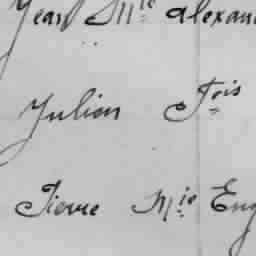 Jean Mie Alexan
Julien Fois
Pierre Mie Eug